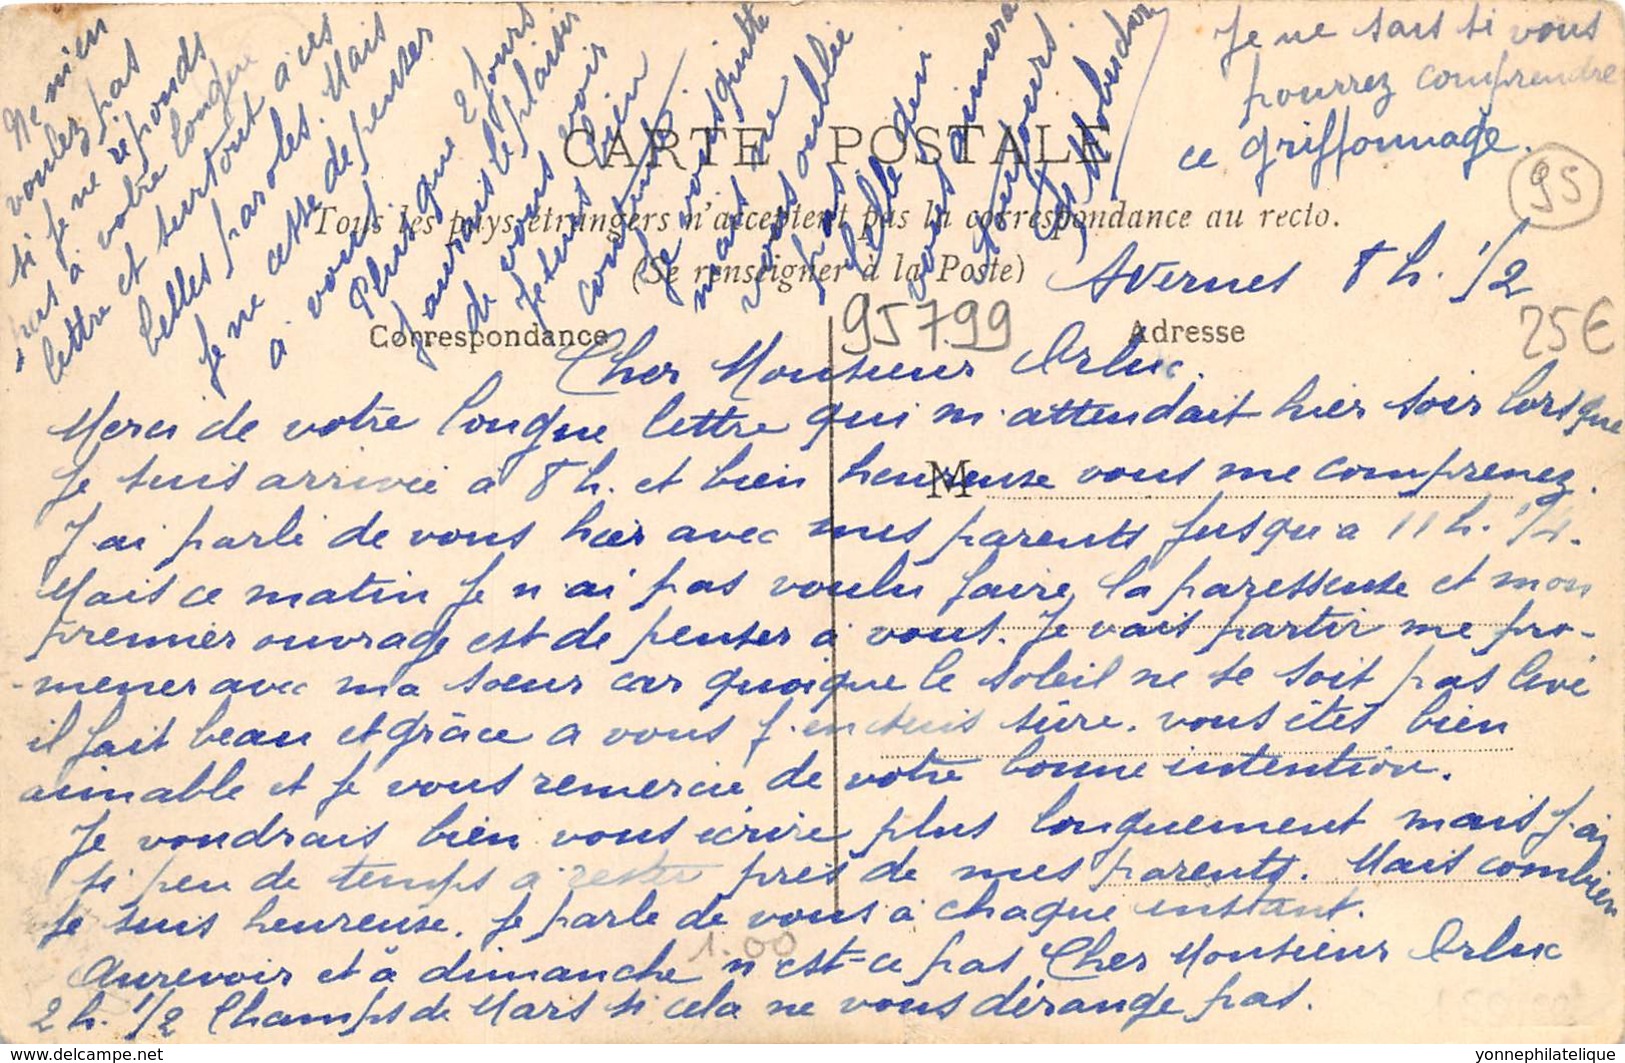 Je ne sais si vous
pourrez comprendre
ce griffonnage.
95
CARTE POSTALE
Tous les pays étrangers n'acceptent pas la correspondance au recto.
(Se renseigner à la Poste)
Correspondance
Adresse
M
95799
25€
1.00
Avernes 8 h. 1/2
Cher Monsieur Orluc.
Merci de votre longue lettre qui m'attendait hier soir lorsque
je suis arrivée à 8 h. et bien heureuse vous me comprenez.
J'ai parlé de vous hier avec mes parents jusqu'a 11 h. 1/4.
Mais ce matin je n'ai pas voulu faire la paresseuse et mon
premier ouvrage est de penser à vous. Je vais partir me pro-
mener avec ma sœur car quoique le soleil ne se soit pas levé
il fait beau et grâce a vous j'en suis sûre. vous êtes bien
aimable et je vous remercie de votre bonne intention.
Je voudrais bien vous écrire plus longuement mais j'ai
si peu de temps a rester près de mes parents. Mais combien
je suis heureuse. je parle de vous à chaque instant.
Aurevoir et à dimanche n'est-ce pas Cher Monsieur Orluc
2 h. 1/2 Champs de Mars si cela ne vous dérange pas.
Ne m'en
voulez pas
si je ne réponds
pas à votre longue
lettre et surtout à ces
belles paroles. Mais
je ne cesse de penser
a vous.
Plus que 2 jours
j'aurais le plaisir
de vous voir
Je suis bien
contente.
Je vous quitte
mais ne
vous oublie
pas
celle qui
vous aimera
toujours.